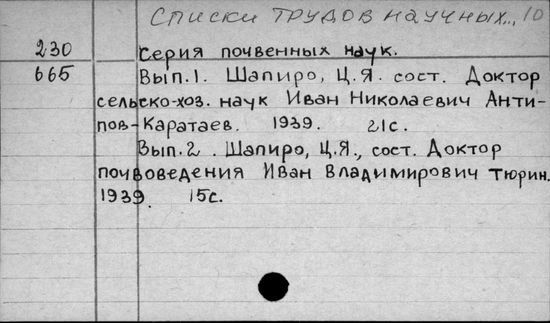 Списки трудов научных... 10
230 Серия почвенных наук.
665 Вып.1. Шапиро, Ц.Я. сост. Доктор
сельско-хоз. наук Иван Николаевич Анти-
пов-Каратаев. 1939. 21с.
Вып.2. Шапиро, Ц.Я., сост. Доктор
почвоведения Иван Владимирович Тюрин.
1939. 15с.